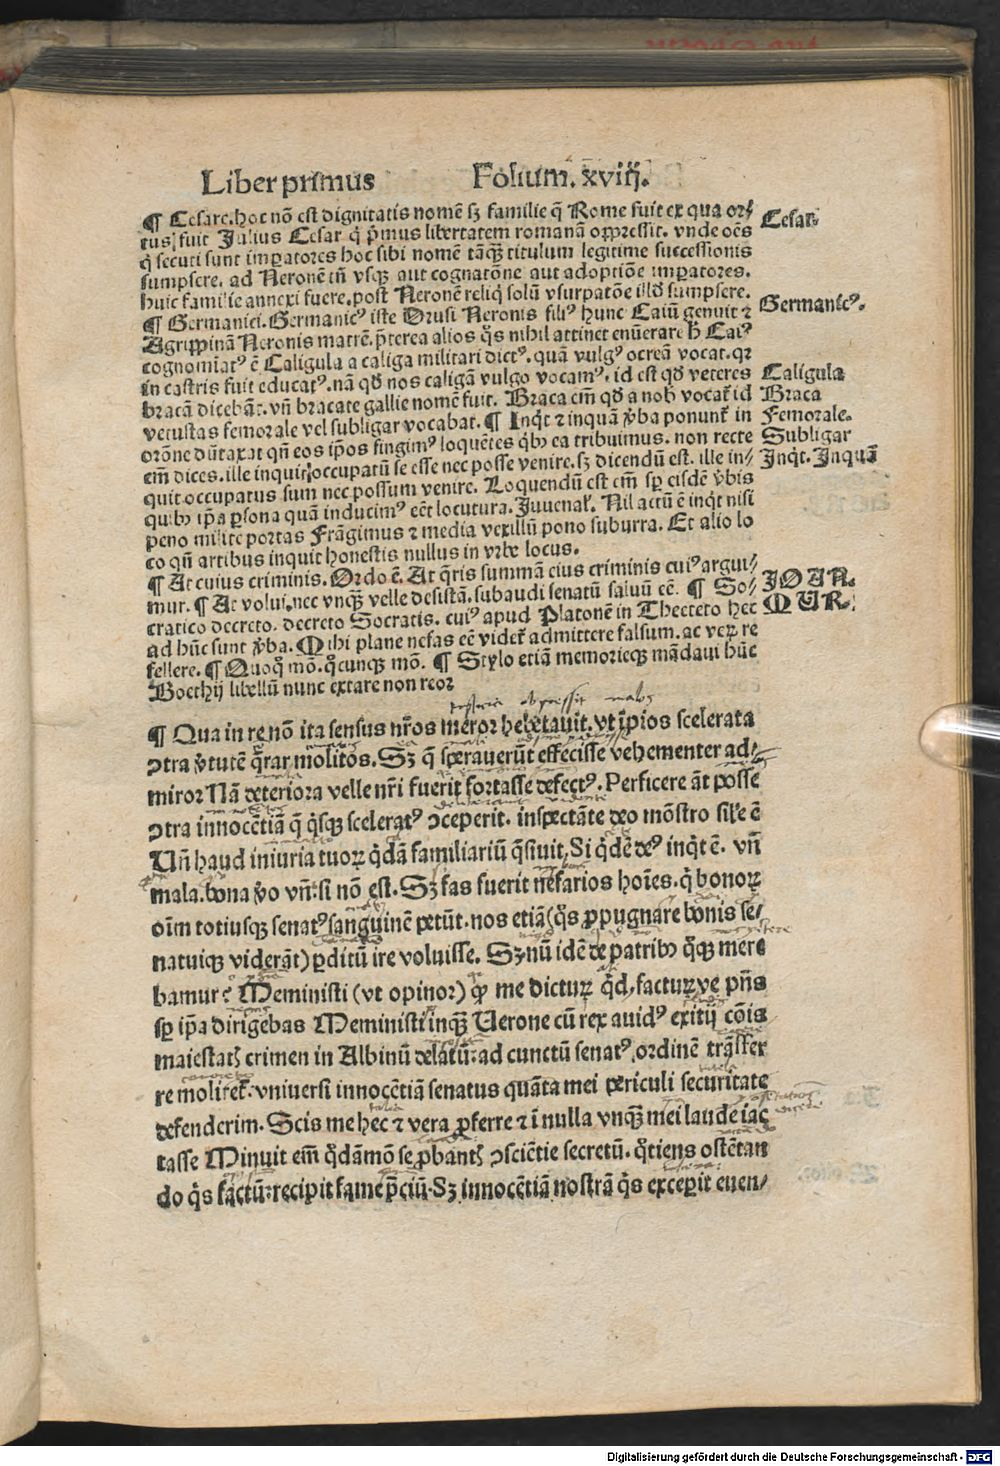 Liber primus Folium. xviij.
¶ Cesare. hoc nō est dignitatis nomē sꝫ familie q̄ Rome fuit ex qua or⸗
tus fuit Julius Cesar q̇ p̄mus libertatem romanā oppressit. vnde oēs
q̇ secuti sunt imꝑatores hoc sibi nomē tāꝙ̄ titulum legitime successionis
sumpsere. ad Neronē tn̄ vsqꝫ aut cognatōne aut adoptiōe imꝑatores.
huic familie annexi fuere. post Neronē reliq̇ solū vsurpatōe illd̓ sumpsere.
¶ Germanici. Germanicꝰ iste Drusi Neronis filiꝰ hunc Caiū genuit ⁊
Agrippinā Neronis matrē. p̄terea alios q̇s nihil attinet enūerare h̄ Caiꝰ
cognomīatꝰ ē Caligula a caliga militari dictꝰ. quā vulgꝰ ocreā vocat. qꝛ
in castris fuit educatꝰ. nā qd̓ nos caligā vulgo vocamꝰ. id est qd̓ veteres
bracā dicebāt. vn̄ bracate gallie nomē fuit. Braca em̄ qd̓ a nob̓ vocat̓ id
vetustas femorale vel subligar vocabat. ¶ Inq̇t ⁊ inquā v̓ba ponunt̓ in
orōne dūtaxat qn̄ eos ip̄os fingimꝰ loquētes q̇bꝫ ea tribuimus. non recte
em̄ dices. ille inquit occupatū se esse nec posse venire. sꝫ dicendū est. ille in⸗
quit occupatus sum nec possum venire. Loquendū est em̄ sꝑ eisdē v̓bis
quibꝫ ip̄a ꝑsona quā inducimꝰ eēt locutura. Juuenal̓. Nil actū ē inq̇t nisi
peno milite portas Frāgimus ⁊ media vexillū pono suburra. Et alio lo
co qn̄ artibus inquit honestis nullus in vrbe locus.
¶ At cuius criminis. Ordo ē. At q̄ris summā eius criminis cuiꝰ argui⸗
mur. ¶ At volui. nec vnqꝫ velle desistā. subaudi senatū saluū eē. ¶ So⸗
cratico decreto. decreto Socratis. cuiꝰ apud Platonē in Theeteto hec
ad hūc sunt v̓ba. Mihi plane nefas eē videt̓ admittere falsum. ac veꝝ re
fellere. ¶ Quoq̊ mō. q̊cunqꝫ mō. ¶ Stylo etiā memorieqꝫ mādaui hūc
Boethij libellū nunc extare non reor
Cesar.
Germanicꝰ.
Caligula
Braca
Femorale.
Subligar
Inq̇t. Inquā
IOAN.
MUR.
¶ Qua in re nō ita sensus nr̄os meror hebetauit. vt īpios scelerata
ↄtra v̓tutē q̄rar molitos. Sꝫ q̄ sperauerūt effecisse vehementer ad⸗
miror Nā deteriora velle nr̄i fuerit fortasse defectꝰ. Perficere āt posse
ↄtra innocētiā q̄ q̇sqꝫ sceleratꝰ ↄceperit. inspectāte deo mōstro sil̓e ē
Un̄ haud iniuria tuoꝝ q̇dā familiariū q̄siuit. Si q̇dē deꝰ inq̇t ē. vn̄
mala. bona v̓o vn̄. si nō est. Sꝫ fas fuerit nefarios hoīes. q̇ bonoꝝ
oīm totiusqꝫ senatꝰ sanguinē petūt. nos etiā (q̇s ꝓpugnare bonis se⸗
natuiqꝫ viderāt) ꝑditū ire voluisse. Sꝫ nū idē de patribꝫ q̊qꝫ mere
bamur? Meministi (vt opinor) qꝛ me dictuꝝ q̇d, factuꝝve p̄n̄s
sꝑ ip̄a dirigebas Meministi inqꝫ Uerone cū rex auidꝰ exitij cōis
maiestatꝭ crimen in Albinū delatū: ad cunctū senatꝰ ordinē trāsfer
re moliret̓. vniuersi innocētiā senatus quāta mei periculi securitate
defenderim. Scis me hec ⁊ vera ꝓferre ⁊ ī nulla vnqꝫ mei laude iac
tasse Minuit em̄ q̊dāmō se ꝓbantꝭ ↄsciētie secretū. q̊tiens ostētan
do q̇s factū: recipit fame p̄ciū. Sꝫ innocētiā nostrā q̇s exceperit euen⸗
Digitalisierung gefördert durch die Deutsche Forschungsgemeinschaft - DFG